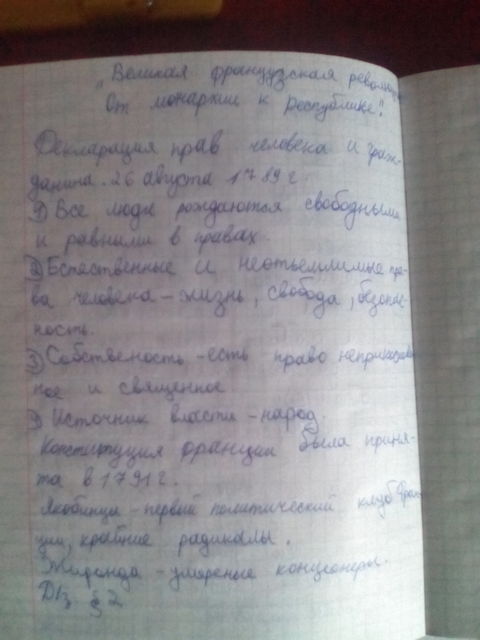 „Великая французская револю
От монархии к республике".
Декларация прав человека и граж-
данина. 26 августа 1789 г.
1) Все люди рождаются свободными
и равными в правах.
2) Естественные и неотъемлимые пра-
ва человека – жизнь, свобода, безопас-
ность.
3) Собственость – есть право неприкосновен
ное и священное
Источник власти – народ.
Конституция франции была приня-
та в 1791 г.
Якобинцы – первый политический клуб Фран
ции, крайние радикалы.
Жиронда – умереные
D/з § 2